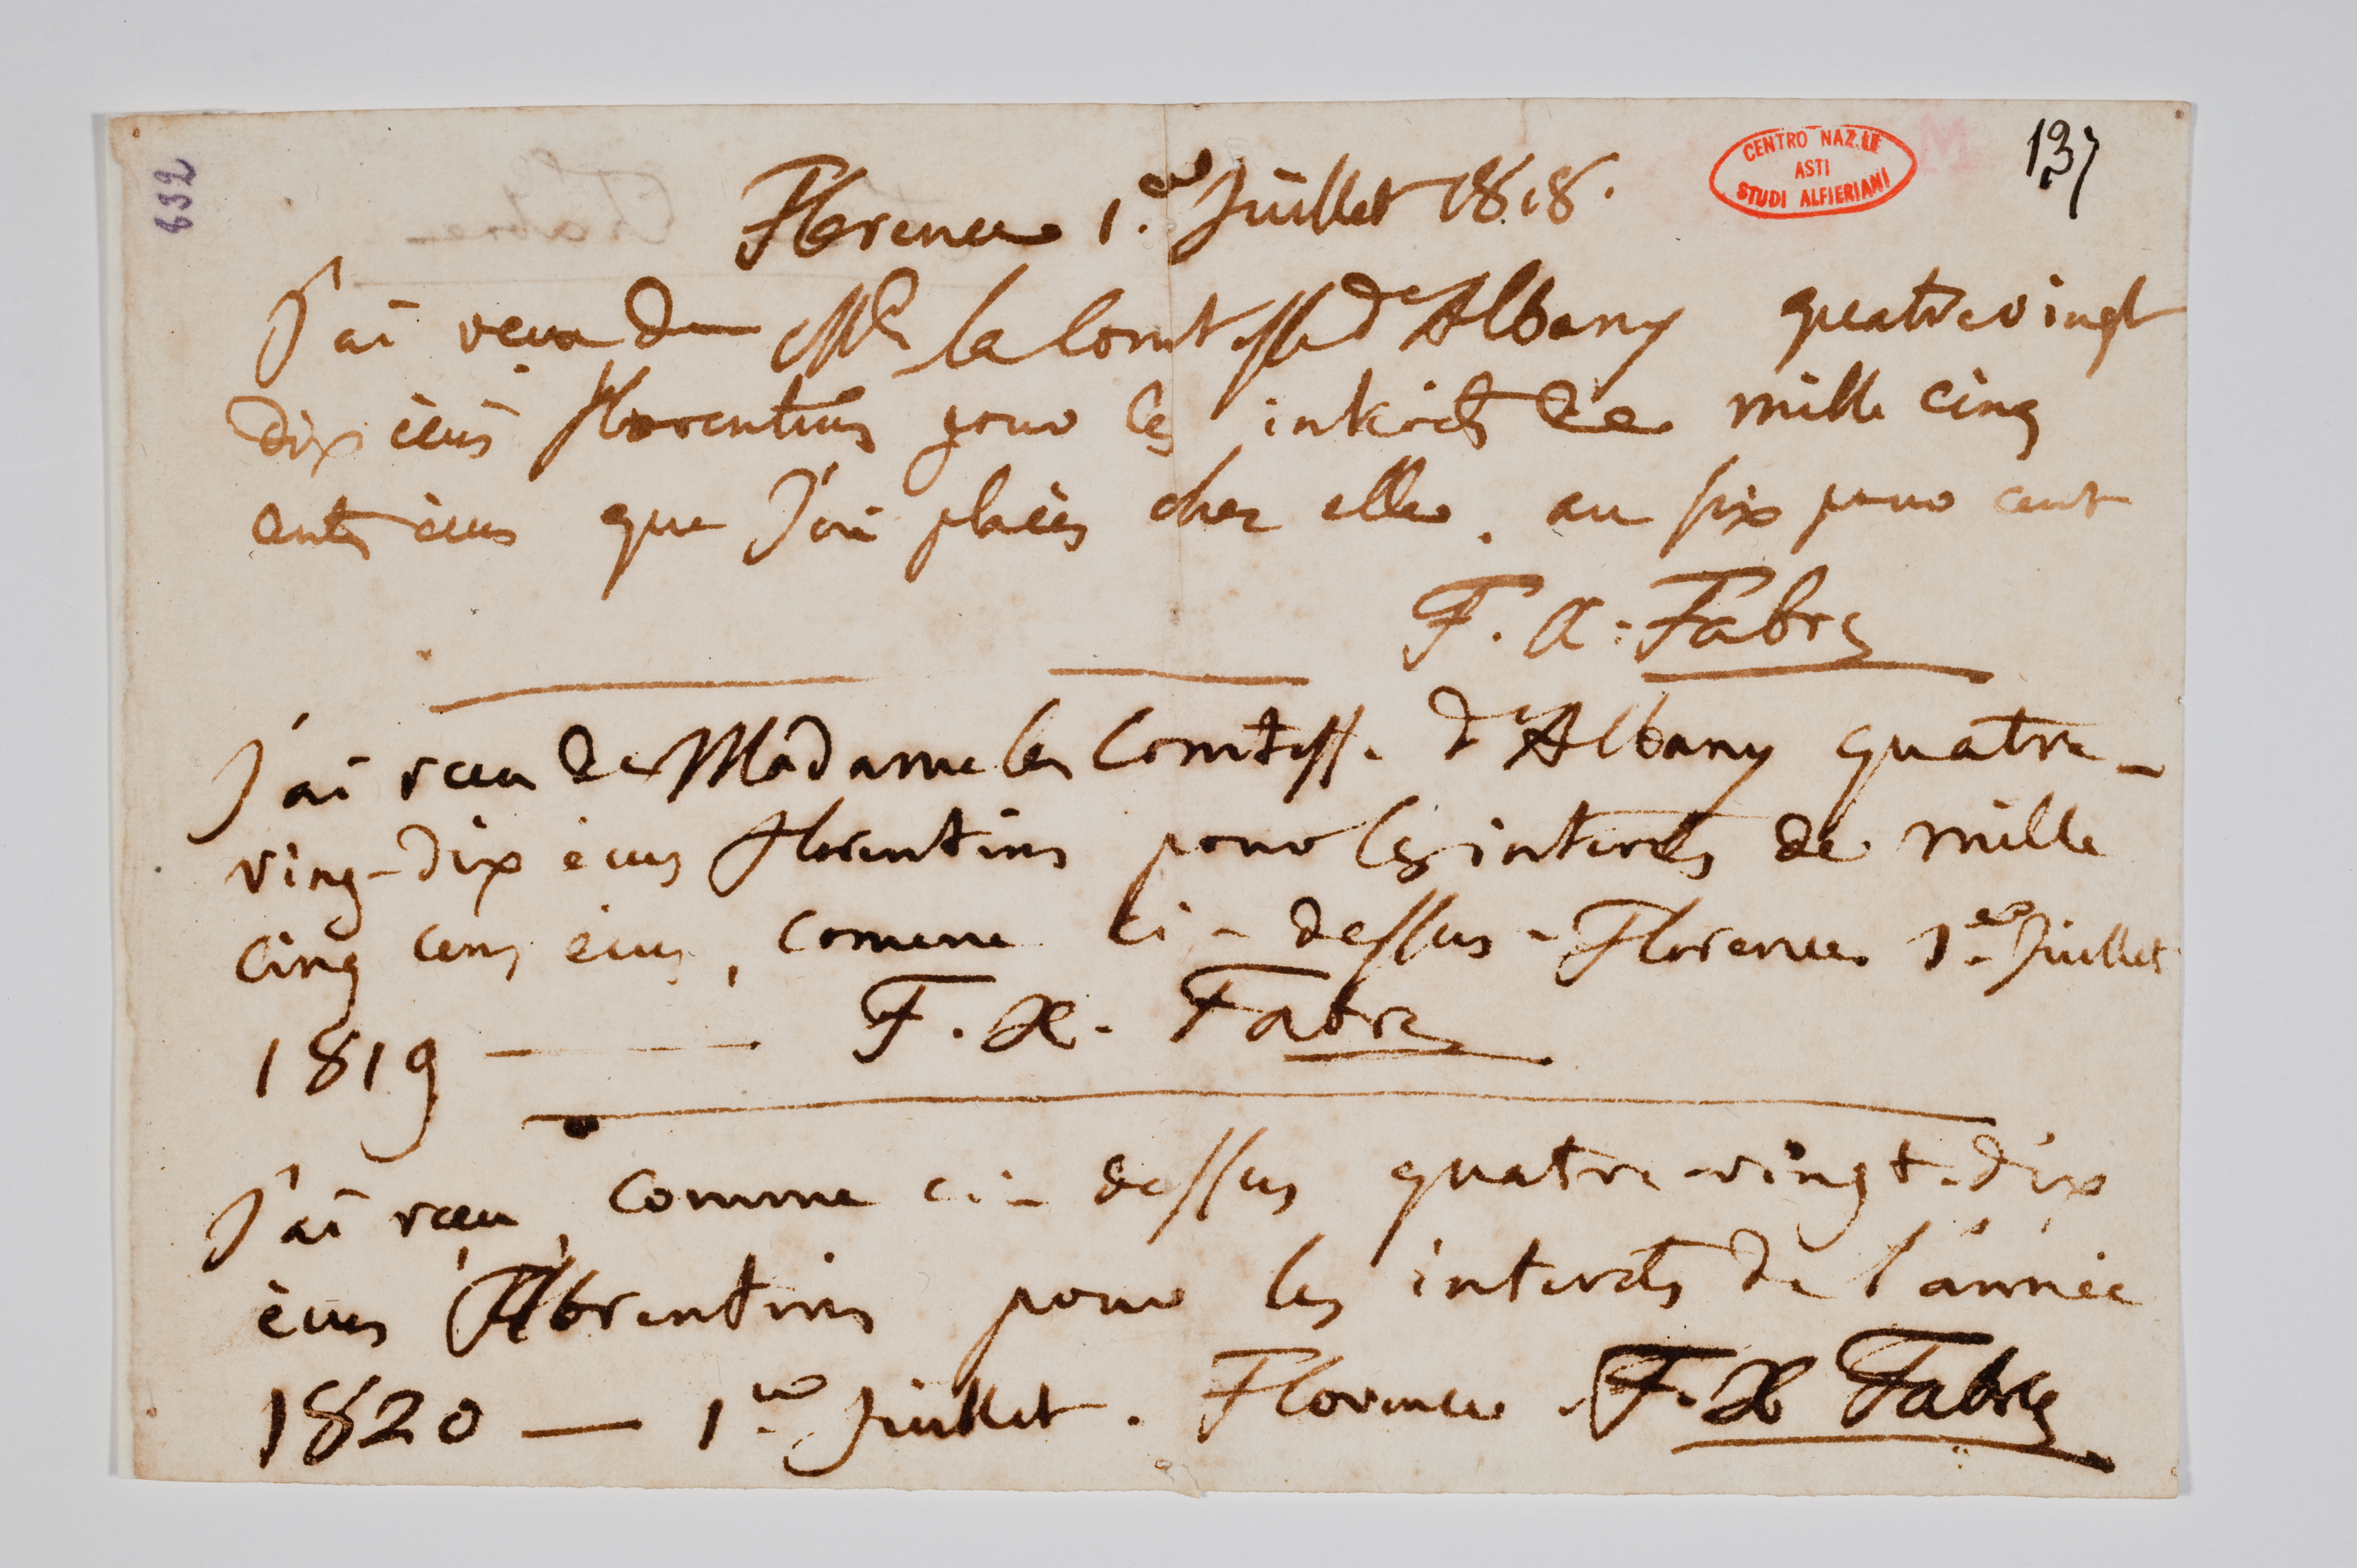 137
CENTRO NAZ.LE
ASTI
STUDI ALFIERIANI
632
Florence 1.er Juillet 1818.
J'ai reçu de Me la Comtesse d'Albany quatrevingt
dix écus florentins pour les interets de mille cinq
cents écus que J'ai placés chez elle. au six pour cent
F. X. Fabre
J'ai recu de Madame la Comtesse d'Albany quatre-
ving-dix écus florentins pour les interets de mille
cinq cens écus, comme ci-dessus - Florence 1.er Juillet
1819 — F. X. Fabre
J'ai reçu, comme ci-dessus quatre-vingt-dix
écus florentins pour les interets de l'année
1820 — 1.er Juillet. Florence. F. X Fabre